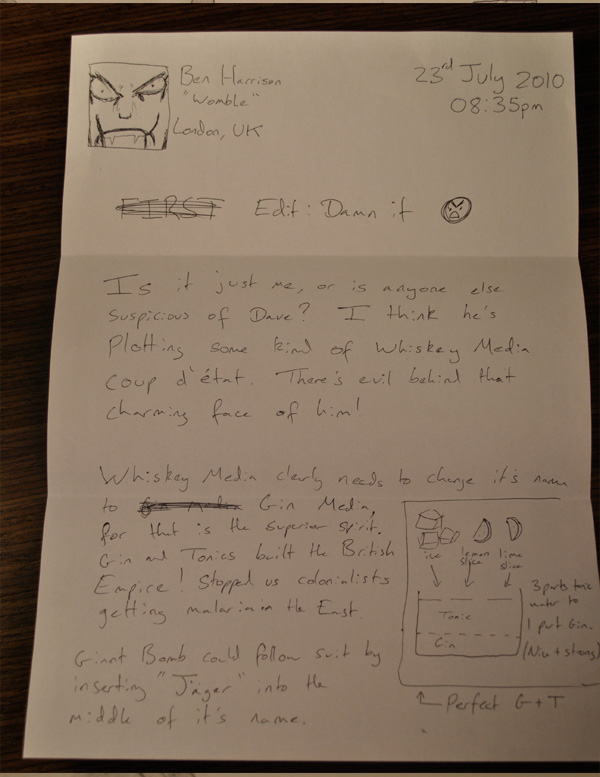 Ben Harrison
"Womble"
London, UK
23rd July 2010
08:35pm
FIRST Edit: Damn it
Is it just me, or is anyone else
suspicious of Dave? I think he's
Plotting some kind of Whiskey Media
coup d'état. There's evil behind that
charming face of him!
Whiskey Media clearly needs to change it's name
to Gin Media,
for that is the superior spirit.
Gin and Tonics built the British
Empire! Stopped us colonialists
getting malaria in the East.
Giant Bomb could follow suit by
inserting "Jäger" into the
middle of it's name.
ice
lemon slice
lime slice
Tonic
Gin
3 parts tonic
water to
1 part Gin.
(Nice + strong)
Perfect G + T